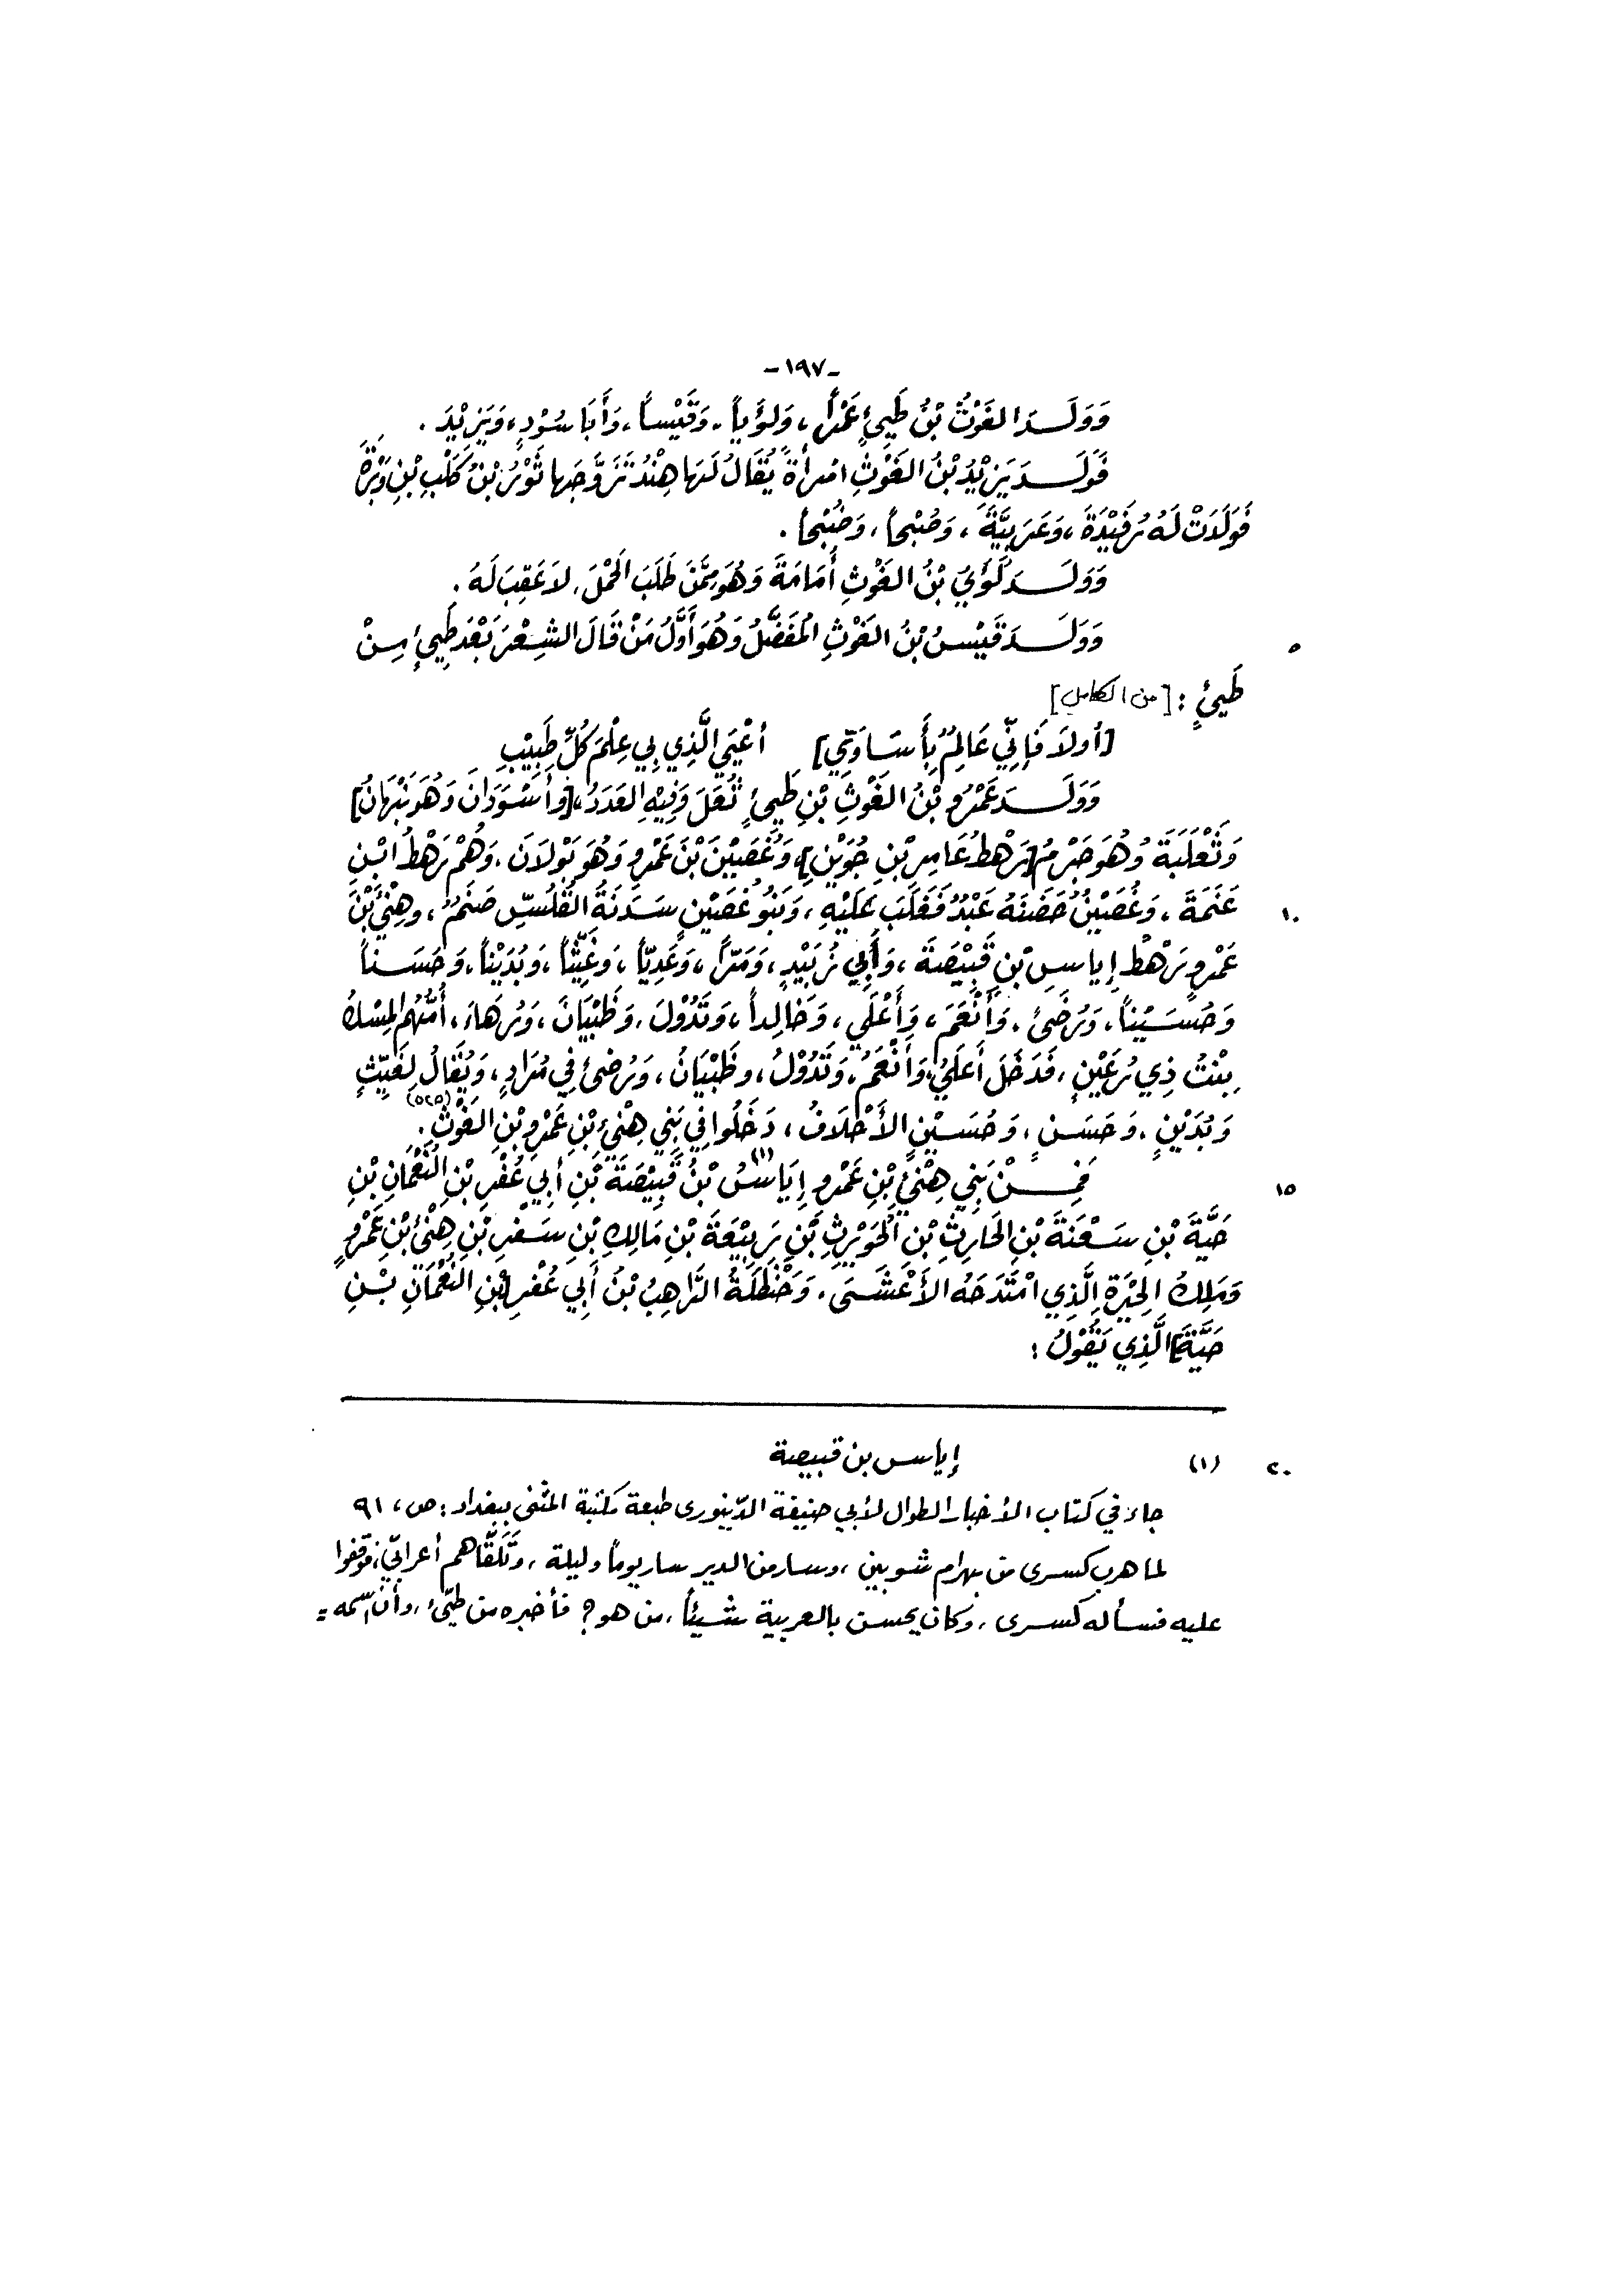 -١٩٧-
وَوَلَـدَ الغَوْثُ بْنُ طَيِئٍ عَمْرَاً، وَلُؤَيّاً، وَقَيْساً، وَأَبَا سُوْدٍ، وَيَزِيْدَ.
فَوَلَـدَ يَزِيْدُ بْنُ الغَوْثِ امْرأَةً يُقَالُ لَهَا هِنْدُ تَزَوَّجَها ثَوْرُ بْنُ كَلْبِ بْنِ وَبَرَةَ
فَوَلَدَتْ لَهُ رُفَيْدَةَ، وَعَرَبِيَّةَ، وَصُبْحاً، وَضُبْحاً.
وَوَلَـدَ لُؤَيُّ بْنُ الغَوْثِ أُمَامَةَ وَهُوَ مِمَّنَ طَلَبَ الحَمْلَ، لاَ عَقِبَ لَهُ.
٥
وَوَلَـدَ قَيْسُ بْنُ الغَوْثِ المُفَضَّلُ وَهُوَ أَوَّلُ مَنْ قَالَ الشِعْرَ بَعْدَ طَيِئٍ مِـنْ
طَيِئٍ: [من الكامل]
[أولاَ فَإنِّي عَالِمٌ بِأَسَاوَتِي] أعْيَى الَّذِي بِي عِلْمَ كُلِّ طَبِيْبِ
وَوَلَـدَ عَمْرُو بْنُ الغَوْثِ بْنِ طَيِئٍ ثُعَلَ وَفِيْهِ العَدَدُ، [وأسْوَدَانَ وَهُوَ نَبْهَانُ]
وَثَعْلَبَةَ وُهُوَ جَرْمُ [رَهْطُ عَامِرِ بْنِ جُوَيْنٍ]، وَغُصَيْنَ بْنَ عَمْرٍو وَهُوَ بَوْلاَنَ، وَهُمْ رَهْطُ ابْنِ
١٠
عَنَمَةَ، وَغُصَيْنُ حَضَنَهُ عَبْدٌ فَغَلَبَ عَلَيْهِ، وَبَنُو غُصَيْنٍ سَدَنَةُ الفُلُسِّ صَنَمٌ، وهِنْئَ بْنَ
عَمْرٍو رَهْطُ إياسِ بْنِ قَبِيْصَةَ، وَأَبِي زُبَيْدٍ، وَمَرّاً، وَعَدِيّاً، وَغَيِّثاً، وَبُدَيْناً، وَحَسَـناً
وَحُسَـيْناً، وَرُضَىً، وَأَنْعَمَ، وَأَعْلَى، وَخَالِداً، وَتَدُوْلَ، وَظَبْيَانَ، وَرُهَاءَ، أُمُّهُم المِسْكُ
بِنْتُ ذِي رُعَيْنٍ، فَدَخَلَ أعَلَىُ، وَأَنْعَمُ، وَتَدُوْلُ، وظَبْيَانُ، وَرُضىً فِي مُرَادٍ، وَيُقَالُ لِغَيِّثٍ
وَبُدَيْنٍ، وَحَسَـنٍ، وَحُسَـيْنٍ الأَحْلاَفُ، دَخَلُوا فِي بَنِي هِنْئِ بْنِ عَمْرِو بْنِ الغَوْثِ.
١٥
فَمِـنْ بَنِي هِنْئِ بْنِ عَمْرٍو إيَاسُ (١) بْنُ قَبِيْصَةَ بْنِ أبِي عُفْرِ بْنِ النُّعْمَانِ بْنِ
حَيَّةَ بْنِ سَـعْنَةَ بْنِ الحَارِثِ بْنِ الحُوَيْرِثِ بْنِ رَبِيْعَةَ بْنِ مَالِكِ بْنِ سَـفْرِ بْنِ هِنْئِ بْنِ عَمْرٍو
وَمَلِكُ الحِيْرَةِ الَّذِي امْتَدَحَهُ الأَعْشَـى، وَحَنْظَلَةُ الرَّاهِبُ بْنُ أَبِي عُفْرِ [بْنِ النُّعْمَانِ بْنِ
حَيَّةَ] الَّذِي يَقُوْلُ:
٢٠
(١) إياس بن قبيصة
جاء في كتاب الأخبار الطوال لأبي حنيفة الدّينوري طبعة مكتبة المثنى ببغداد: ص، ٩١
لما هرب كسرى من بهرام شوبين، وسار من الدير سار يوماً وليلة، وتَلَقَّاهم أعرابيّ، فوقفوا
عليه فسأله كسرى، وكان يحسن بالعربية شـيئاً، من هو؟ فأخبره من طيّئ، وأن اسمه =